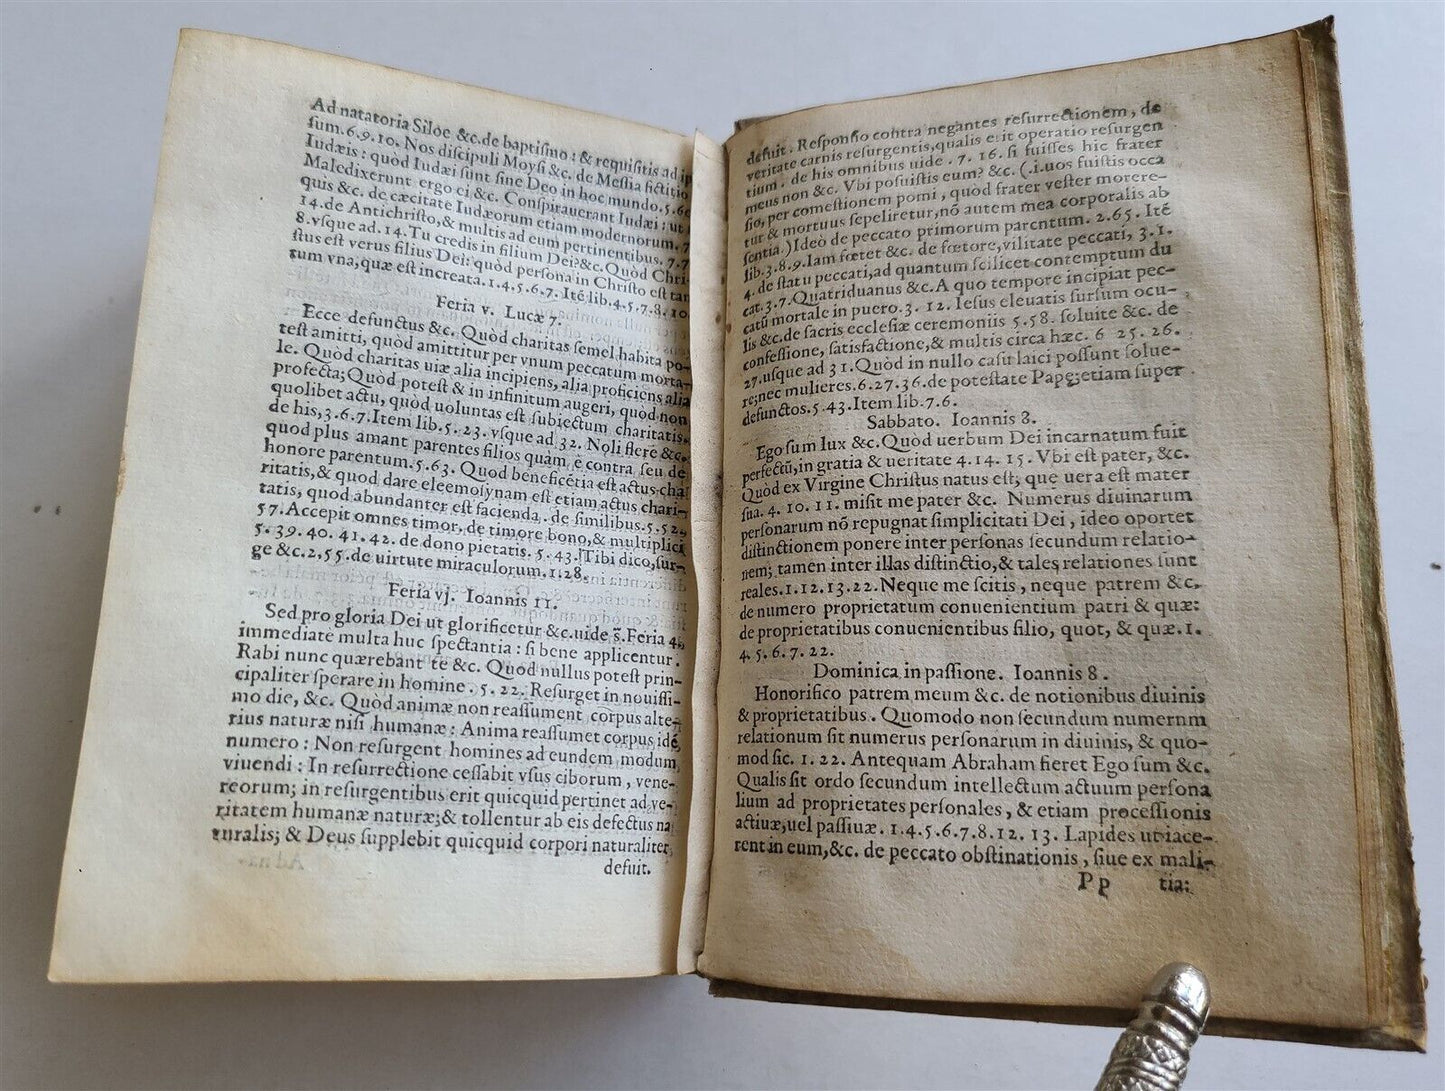 Ad natatoria Siloe &c. de baptismo: & requisitis ad ip
sum. 6. 9. 10. Nos discipuli Moysi &c. de Messia fictitio
Iudæis: quòd Iudæi sunt sine Deo in hoc mundo. 5. 60
Maledixerunt ergo ei &c. Conspirauerant Iudæi: ut
quis &c. de cæcitate Iudæorum etiam modernorum. 7
14. de Antichristo, & multis ad eum pertinentibus. 7. 7
8. vsque ad. 14. Tu credis in filium Dei? &c. Quòd Chri-
stus est verus filius Dei: quòd persona in Christo est tan
tum vna, quæ est increata. 1. 4. 5. 6. 7. Itẽ lib. 4. 5. 7. 8. 10.
Feria v. Lucæ 7.
Ecce defunctus &c. Quòd charitas semel habita po-
test amitti, quòd amittitur per vnum peccatum morta-
le. Quòd charitas uiæ alia incipiens, alia proficiens, alia
profecta; Quòd potest & in infinitum augeri, quòd non
quolibet actu, quòd uoluntas est subiectum charitatis.
de his, 3. 6. 7. Item lib. 5. 23. vsque ad 32. Noli flere &c.
quod plus amant parentes filios quàm è contra, seu de
honore parentum. 5. 63. Quod beneficẽtia est actus cha
ritatis, & quòd dare eleemosynam est etiam actus chari-
tatis, quod abundanter est facienda. de similibus. 5. 52.
57. Accepit omnes timor, de timore bono, & multiplici
5. 39. 40. 41. 42. de dono pietatis. 5. 43. Tibi dico, sur-
ge &c. 2, 55. de uirtute miraculorum. 1. 28.
Feria vj. Ioannis 11.
Sed pro gloria Dei ut glorificetur &c. uide s̃. Feria 4.
immediate multa huc spectantia: si bene applicentur.
Rabi nunc quærebant te &c. Quod nullus potest prin-
cipaliter sperare in homine. 5. 22. Resurget in nouissi-
mo die, &c. Quòd animæ non reassument corpus alte-
rius naturæ nisi humanæ: Anima reassumet corpus idẽ
numero: Non resurgent homines ad eundem modum
viuendi: In resurrectione cessabit vsus ciborum, vene-
reorum; in resurgentibus erit quicquid pertinet ad ve-
ritatem humanæ naturæ; & tollentur ab eis defectus na
turalis; & Deus supplebit quicquid corpori naturaliter
defuit.
defuit. Responsio contra negantes resurrectionem, de
veritate carnis resurgentis, qualis erit operatio resurgen
tium. de his omnibus uide. 7. 16. si fuisses hic frater
meus non &c. Vbi posuistis eum? &c. (.i. uos fuistis occa
sio, per comestionem pomi, quòd frater vester morere-
tur & mortuus sepeliretur, nõ autem mea corporalis ab
sentia.) Ideò de peccato primorum parentum. 2. 65. Itẽ
lib. 3. 8. 9. Iam fœtet &c. de fœtore, vilitate peccati, 3. 1.
4. de statu peccati, ad quantum scilicet contemptum du
cat. 3. 7. Quatriduanus &c. A quo tempore incipiat pec-
catũ mortale in puero. 3. 12. Iesus eleuatis sursum ocu-
lis &c. de sacris ecclesiæ ceremoniis 5. 58. soluite &c. de
confessione, satisfactione, & multis circa hæc. 6 25. 26.
27. usque ad 31. Quòd in nullo casu laici possunt solue-
re; nec mulieres. 6. 27. 36. de potestate Papę; etiam super
defunctos. 5. 43. Item lib. 7. 6.
Sabbato. Ioannis 8.
Ego sum lux &c. Quòd uerbum Dei incarnatum fuit
perfectũ, in gratia & ueritate 4. 14. 15. Vbi est pater, &c.
Quòd ex Virgine Christus natus est; que uera est mater
sua. 4. 10. 11. misit me pater &c. Numerus diuinarum
personarum nõ repugnat simplicitati Dei, ideo oportet
distinctionem ponere inter personas secundum relatio-
nem; tamen inter illas distinctio, & tales relationes sunt
reales. 1. 12. 13. 22. Neque me scitis, neque patrem &c.
de numero proprietatum conuenientium patri & quæ:
de proprietatibus conuenientibus filio, quot, & quæ. 1.
4. 5. 6. 7. 22.
Dominica in passione. Ioannis 8.
Honorifico patrem meum &c. de notionibus diuinis
& proprietatibus. Quomodo non secundum numerum
relationum sit numerus personarum in diuinis, & quo-
mod sic. 1. 22. Antequam Abraham fieret Ego sum &c.
Qualis sit ordo secundum intellectum actuum persona
lium ad proprietates personales, & etiam processionis
actiuæ, uel passiuæ. 1. 4. 5. 6. 7. 8. 12. 13. Lapides ut iace-
rent in eum, &c. de peccato obstinationis, siue ex mali-
Pp tia: